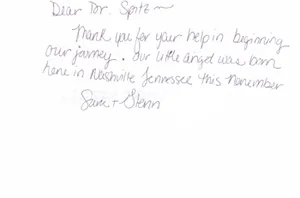 Dear Dr. Spitz ~
Thank you for your help in beginning
our journey. Our little angel was born
here in Nashville Tennessee this November
Sara + Glenn